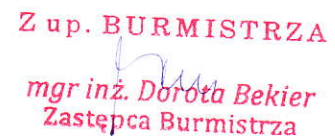 Z up. BURMISTRZA
mgr inż. Dorota Bekier
Zastępca Burmistrza